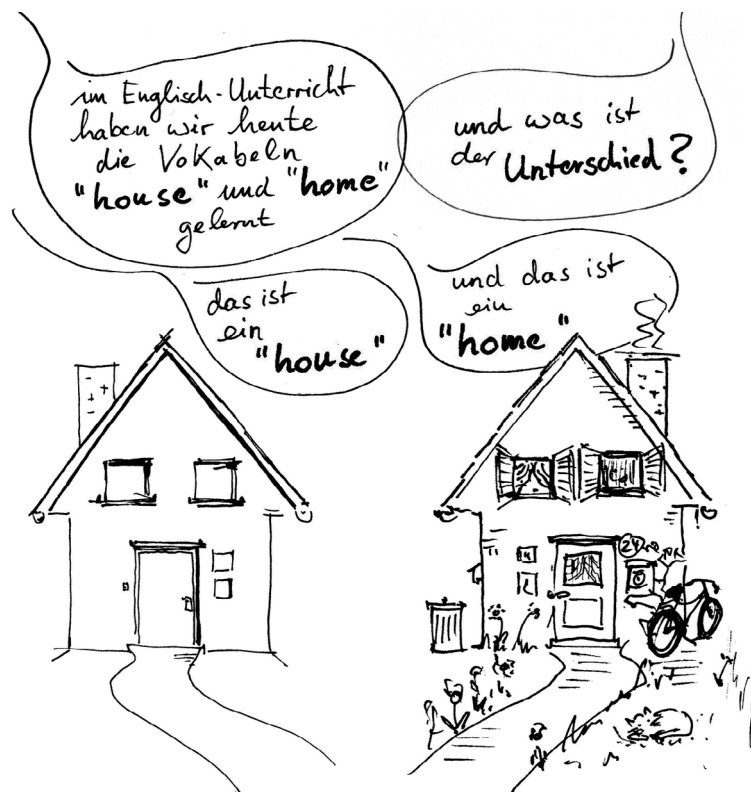 im Englisch-Unterricht
haben wir heute
die Vokabeln
"house" und "home"
gelernt
und was ist
der Unterschied?
das ist
ein
"house"
und das ist
ein
"home"
24